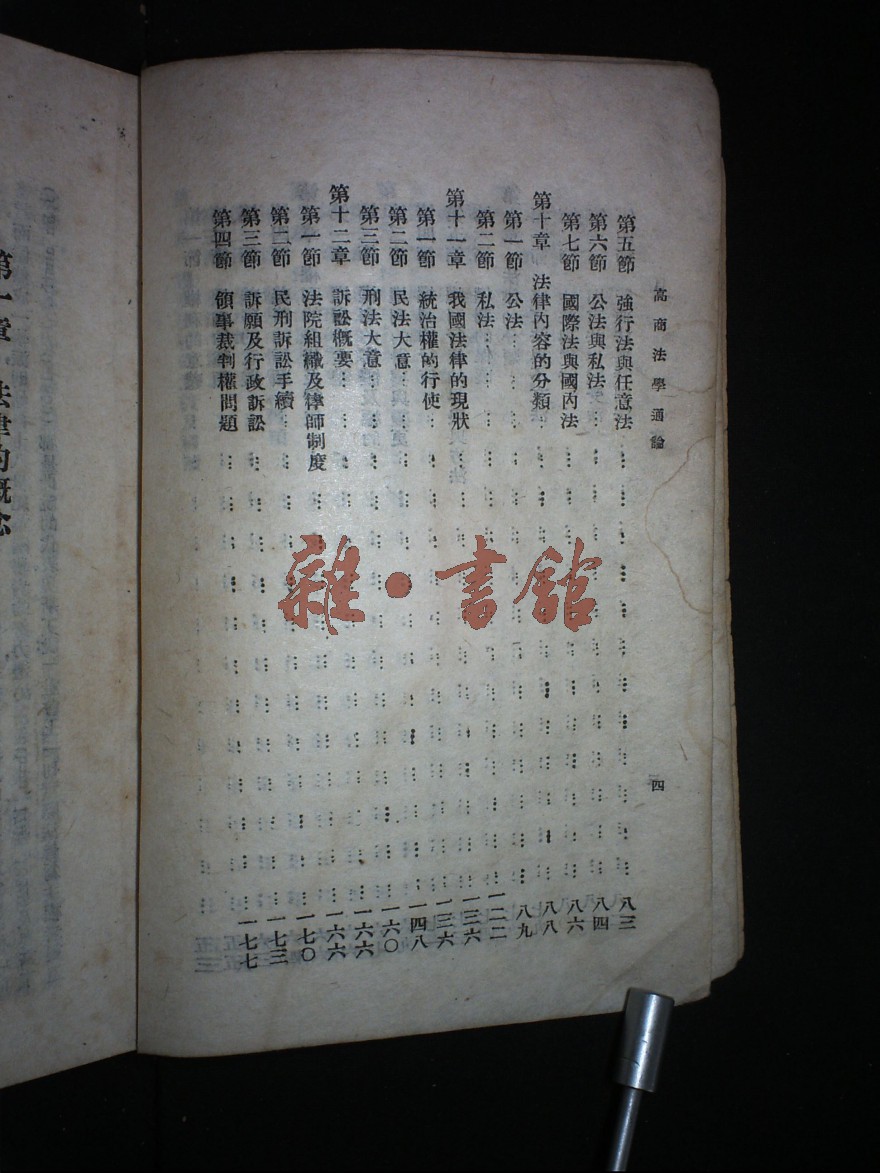 高商法學通論
四
第五節 強行法與任意法……八三
第六節 公法與私法……八四
第七節 國際法與國內法……八六
第十章 法律內容的分類……八八
第一節 公法……八九
第二節 私法……一二二
第十一章 我國法律的現狀……一三六
第一節 統治權的行使……一三六
第二節 民法大意……一四八
第三節 刑法大意……一六〇
第十二章 訴訟概要……一六六
第一節 法院組織及律師制度……一六六
第二節 民刑訴訟手續……一七〇
第三節 訴願及行政訴訟……一七三
第四節 領事裁判權問題……一七七
第一章 法律的概念
雜·書館